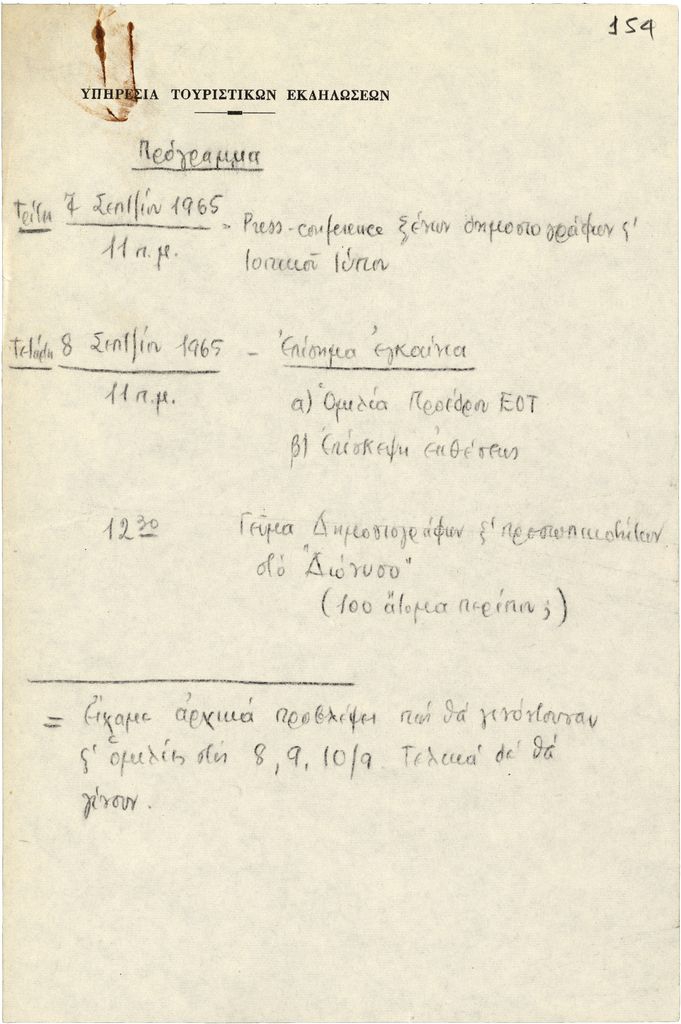 154
ΥΠΗΡΕΣΙΑ ΤΟΥΡΙΣΤΙΚΩΝ ΕΚΔΗΛΩΣΕΩΝ
Πρόγραμμα
Τρίτη 7 Σεπτ/ίου 1965 - Press-conference ξένων δημοσιογράφων ϛ'
11 π.μ. τοπικοῦ τύπου
Τετάρτη 8 Σεπτ/ίου 1965 - Ἐπίσημα ἐγκαίνια
11 π.μ. α) Ὁμιλία Προέδρου ΕΟΤ
β) Ἐπίσκεψη ἐκθέσεως
12 30 Γεῦμα Δημοσιογράφων ϛ' προσωπικοτήτων
στό "Διόνυσο"
(100 ἄτομα περίπου ;)
= Εἴχαμε ἀρχικά προβλέψει πώς θά γινόντουσαν
ϛ' ὁμιλίες στίς 8, 9, 10/9. Τελικά δέ θά
γίνουν.